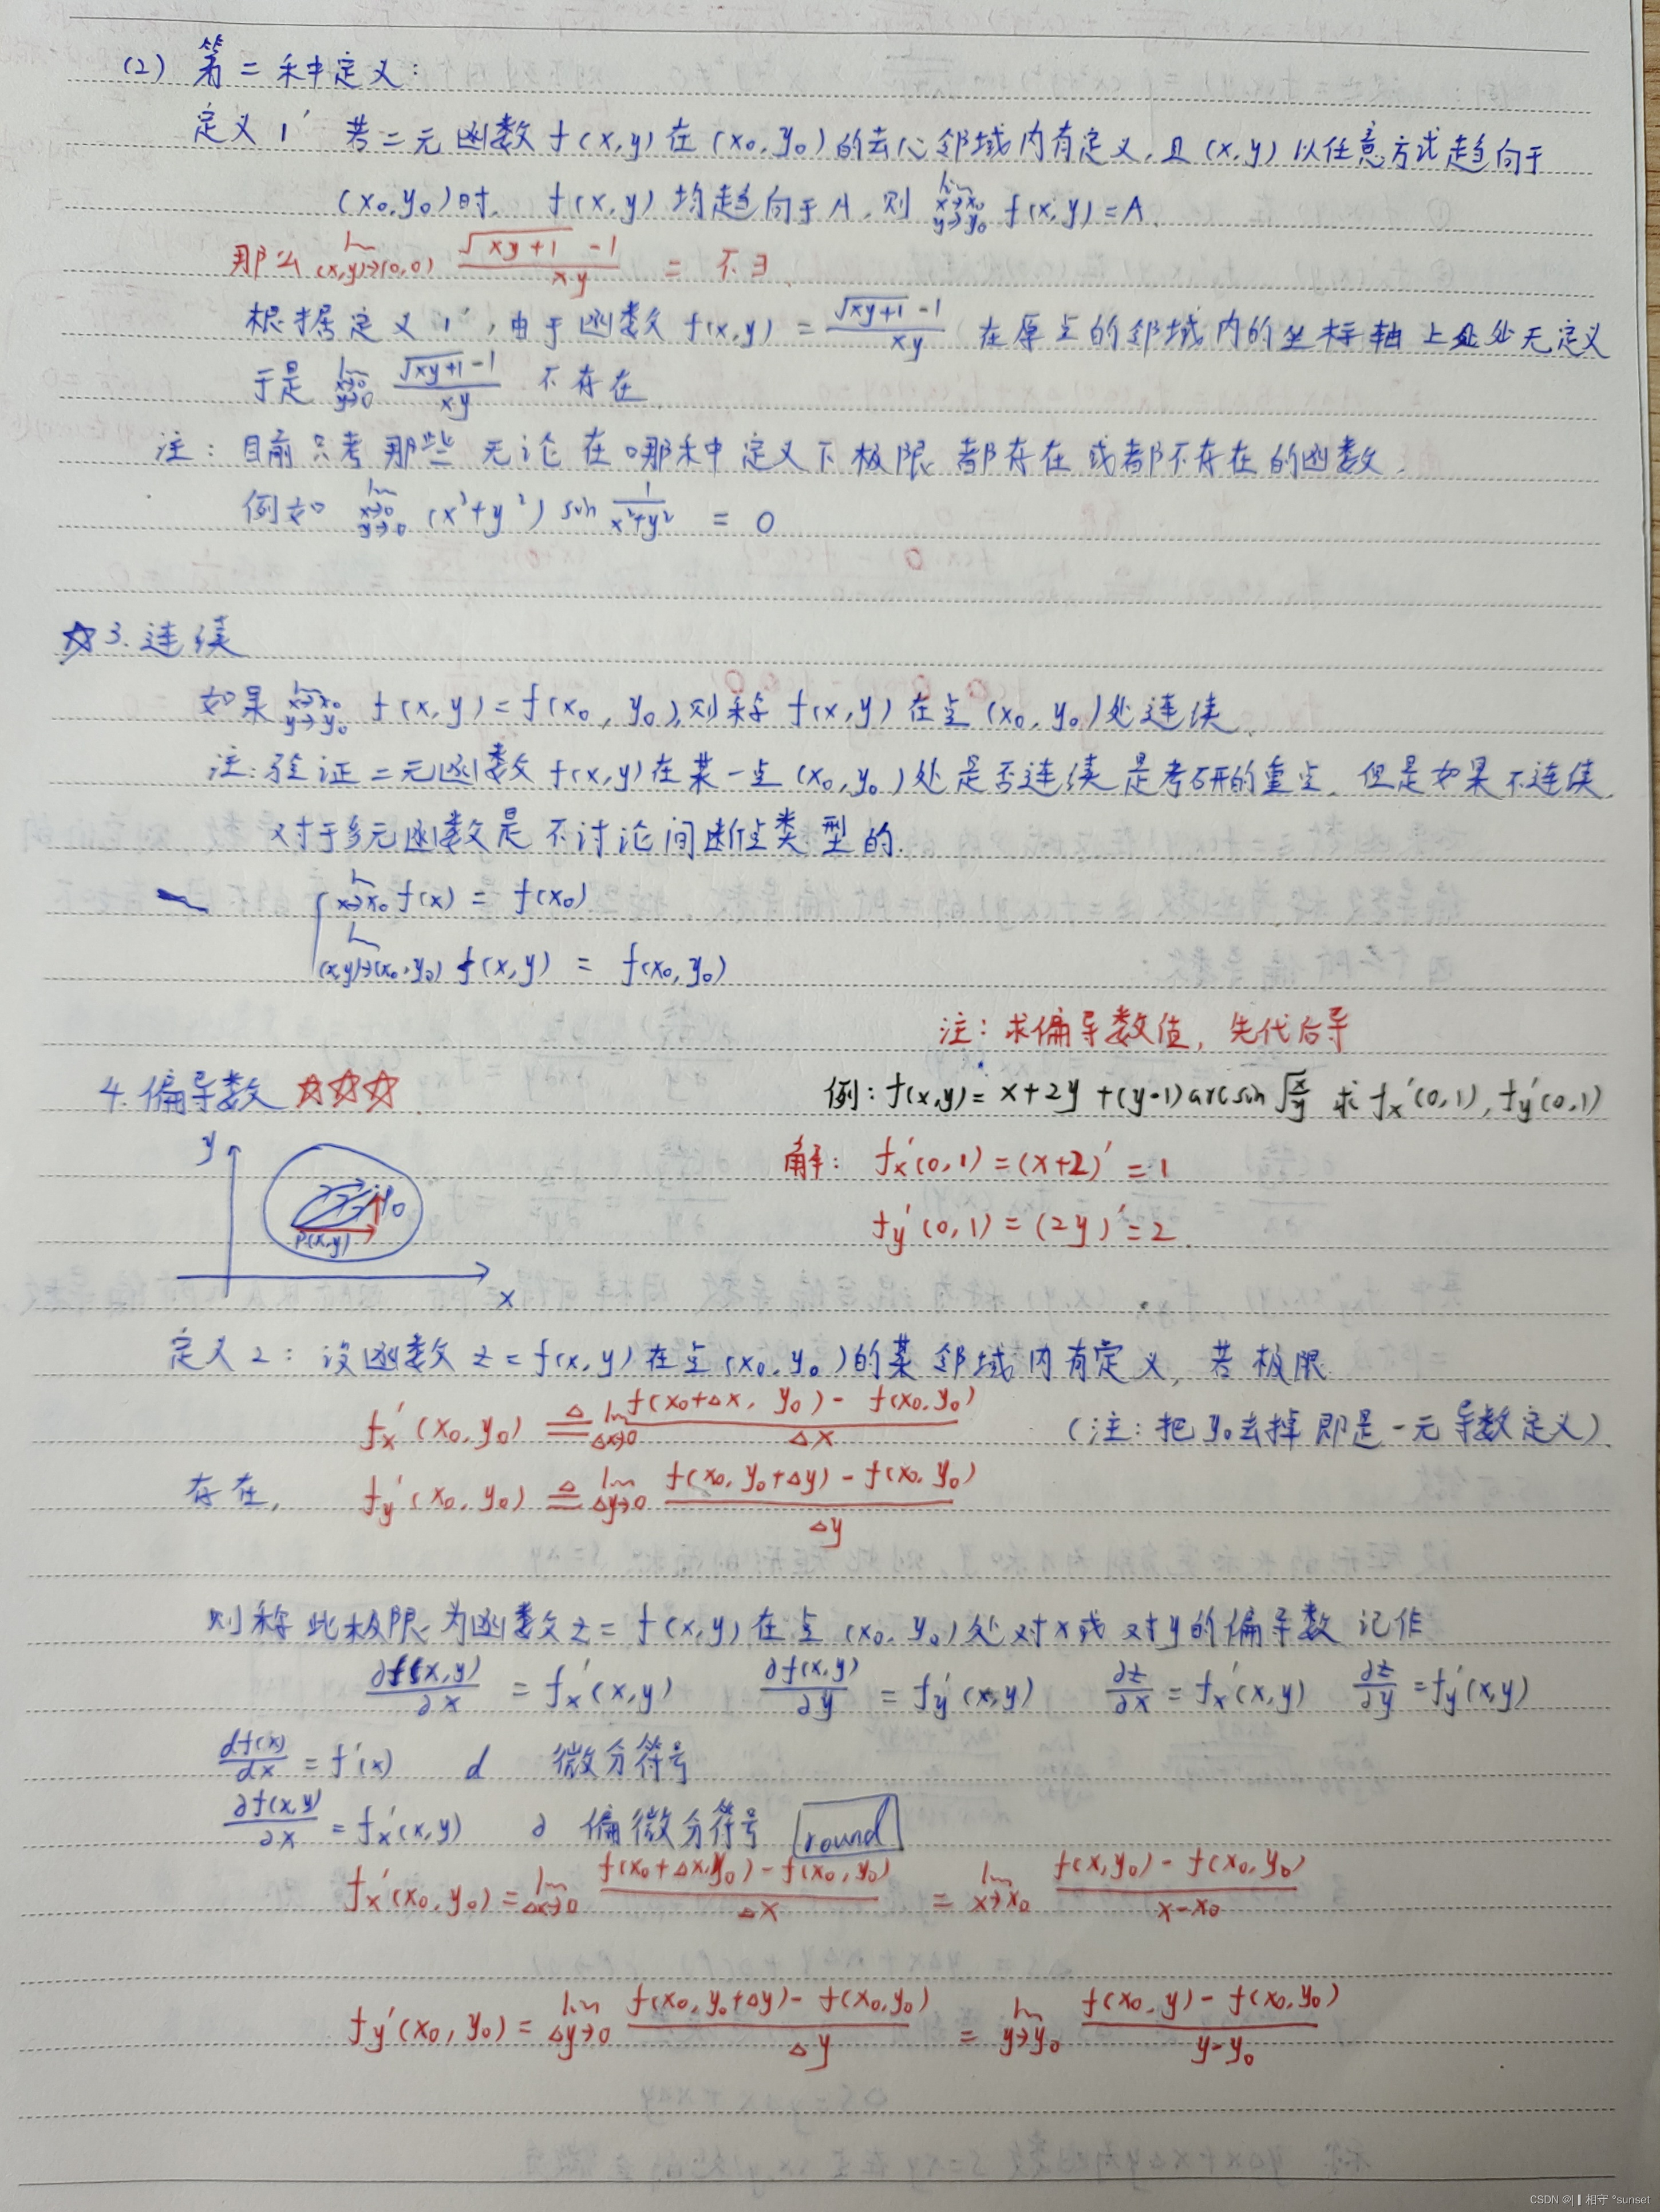 (2) 第二种定义:
定义1′ 若二元函数 f(x,y) 在 (x₀,y₀) 的去心邻域内有定义, 且 (x,y) 以任意方式趋向于
(x₀,y₀)时, f(x,y) 均趋向于A, 则 lim_{x→x₀, y→y₀} f(x,y)=A.
那么 lim_{(x,y)→(0,0)} (√(xy+1) -1)/(xy) = 不∃.
根据定义1′, 由于函数 f(x,y) = (√(xy+1) -1)/(xy) 在原点的邻域内的坐标轴上处处无定义
于是 lim_{x→0, y→0} (√(xy+1) -1)/(xy) 不存在.
注: 目前只考那些 无论在哪种定义下极限都存在或都不存在的函数.
例如 lim_{x→0, y→0} (x²+y²) sin 1/(x²+y²) = 0
☆3. 连续
如果 lim_{x→x₀, y→y₀} f(x,y)=f(x₀,y₀), 则称 f(x,y) 在点 (x₀,y₀)处连续.
注: 验证二元函数 f(x,y)在某一点 (x₀,y₀)处是否连续是考研的重点. 但是如果不连续,
对于多元函数是不讨论间断点类型的.
{ lim_{x→x₀} f(x) = f(x₀)
lim_{(x,y)→(x₀,y₀)} f(x,y) = f(x₀,y₀)
注: 求偏导数值, 先代后导
4. 偏导数 ☆☆☆
例: f(x,y)= x+2y +(y-1)arcsin √(x/y) 求 fx′(0,1), fy′(0,1)
解: fx′(0,1)=(x+2)′=1
fy′(0,1)=(2y)′=2.
y
P₀
P(x,y)
x
定义2: 设函数 z=f(x,y)在点(x₀,y₀)的某邻域内有定义, 若极限
fx′(x₀,y₀) ≜ lim_{Δx→0} (f(x₀+Δx, y₀) - f(x₀,y₀))/Δx (注: 把y₀去掉即是一元导数定义).
存在, fy′(x₀,y₀) ≜ lim_{Δy→0} (f(x₀,y₀+Δy) - f(x₀,y₀))/Δy
则称此极限为函数z= f(x,y)在点 (x₀,y₀)处对x或对y的偏导数 记作
∂f(x,y)/∂x = fx′(x,y) ∂f(x,y)/∂y = fy′(x,y) ∂z/∂x = fx′(x,y) ∂z/∂y = fy′(x,y)
df(x)/dx = f′(x) d 微分符号
∂f(x,y)/∂x = fx′(x,y) ∂ 偏微分符号 round
fx′(x₀,y₀) = lim_{Δx→0} (f(x₀+Δx,y₀) - f(x₀,y₀))/Δx = lim_{x→x₀} (f(x,y₀) - f(x₀,y₀))/(x-x₀)
fy′(x₀,y₀) = lim_{Δy→0} (f(x₀,y₀+Δy) - f(x₀,y₀))/Δy = lim_{y→y₀} (f(x₀,y) - f(x₀,y₀))/(y-y₀)